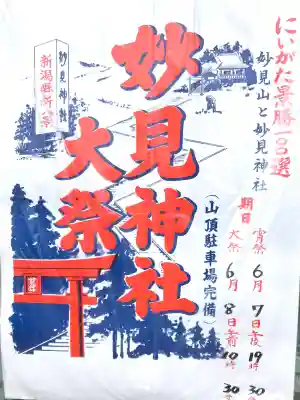 にいがた景勝一〇〇選
妙見山と妙見神社
期日
宵祭 6月7日午後19時30分
大祭 6月8日午前10時30分
妙見神社
大祭
(山頂駐車場完備)
妙見神社